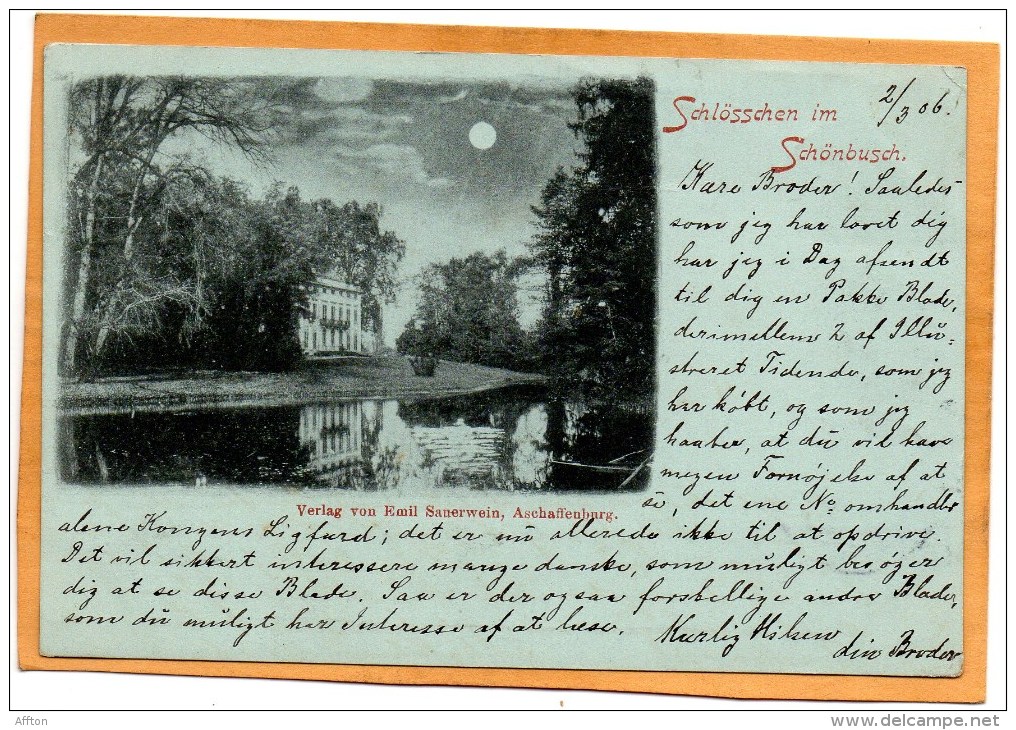 Schlösschen im
Schönbusch.
2/3 06.
Kære Broder! Saaledes
som jeg har lovet dig
har jeg i Dag afsendt
til dig en Pakke Blade,
derimellem 2 af Illu-
streret Tidende, som jeg
har købt, og som jeg
haaber, at du vil have
megen Fornøjelse af at
se, det ene No. omhandler
Verlag von Emil Sauerwein, Aschaffenburg.
alene Kongens Ligfærd; det er nu allerede ikke til at opdrive.
Det vil sikkert interessere mange danske, som muligt besøger
dig at se disse Blade. Saa er der ogsaa forskellige andre Blade,
som du muligt har Interesse af at læse. Kærlig Hilsen
din Broder
Affton
delcampe.net